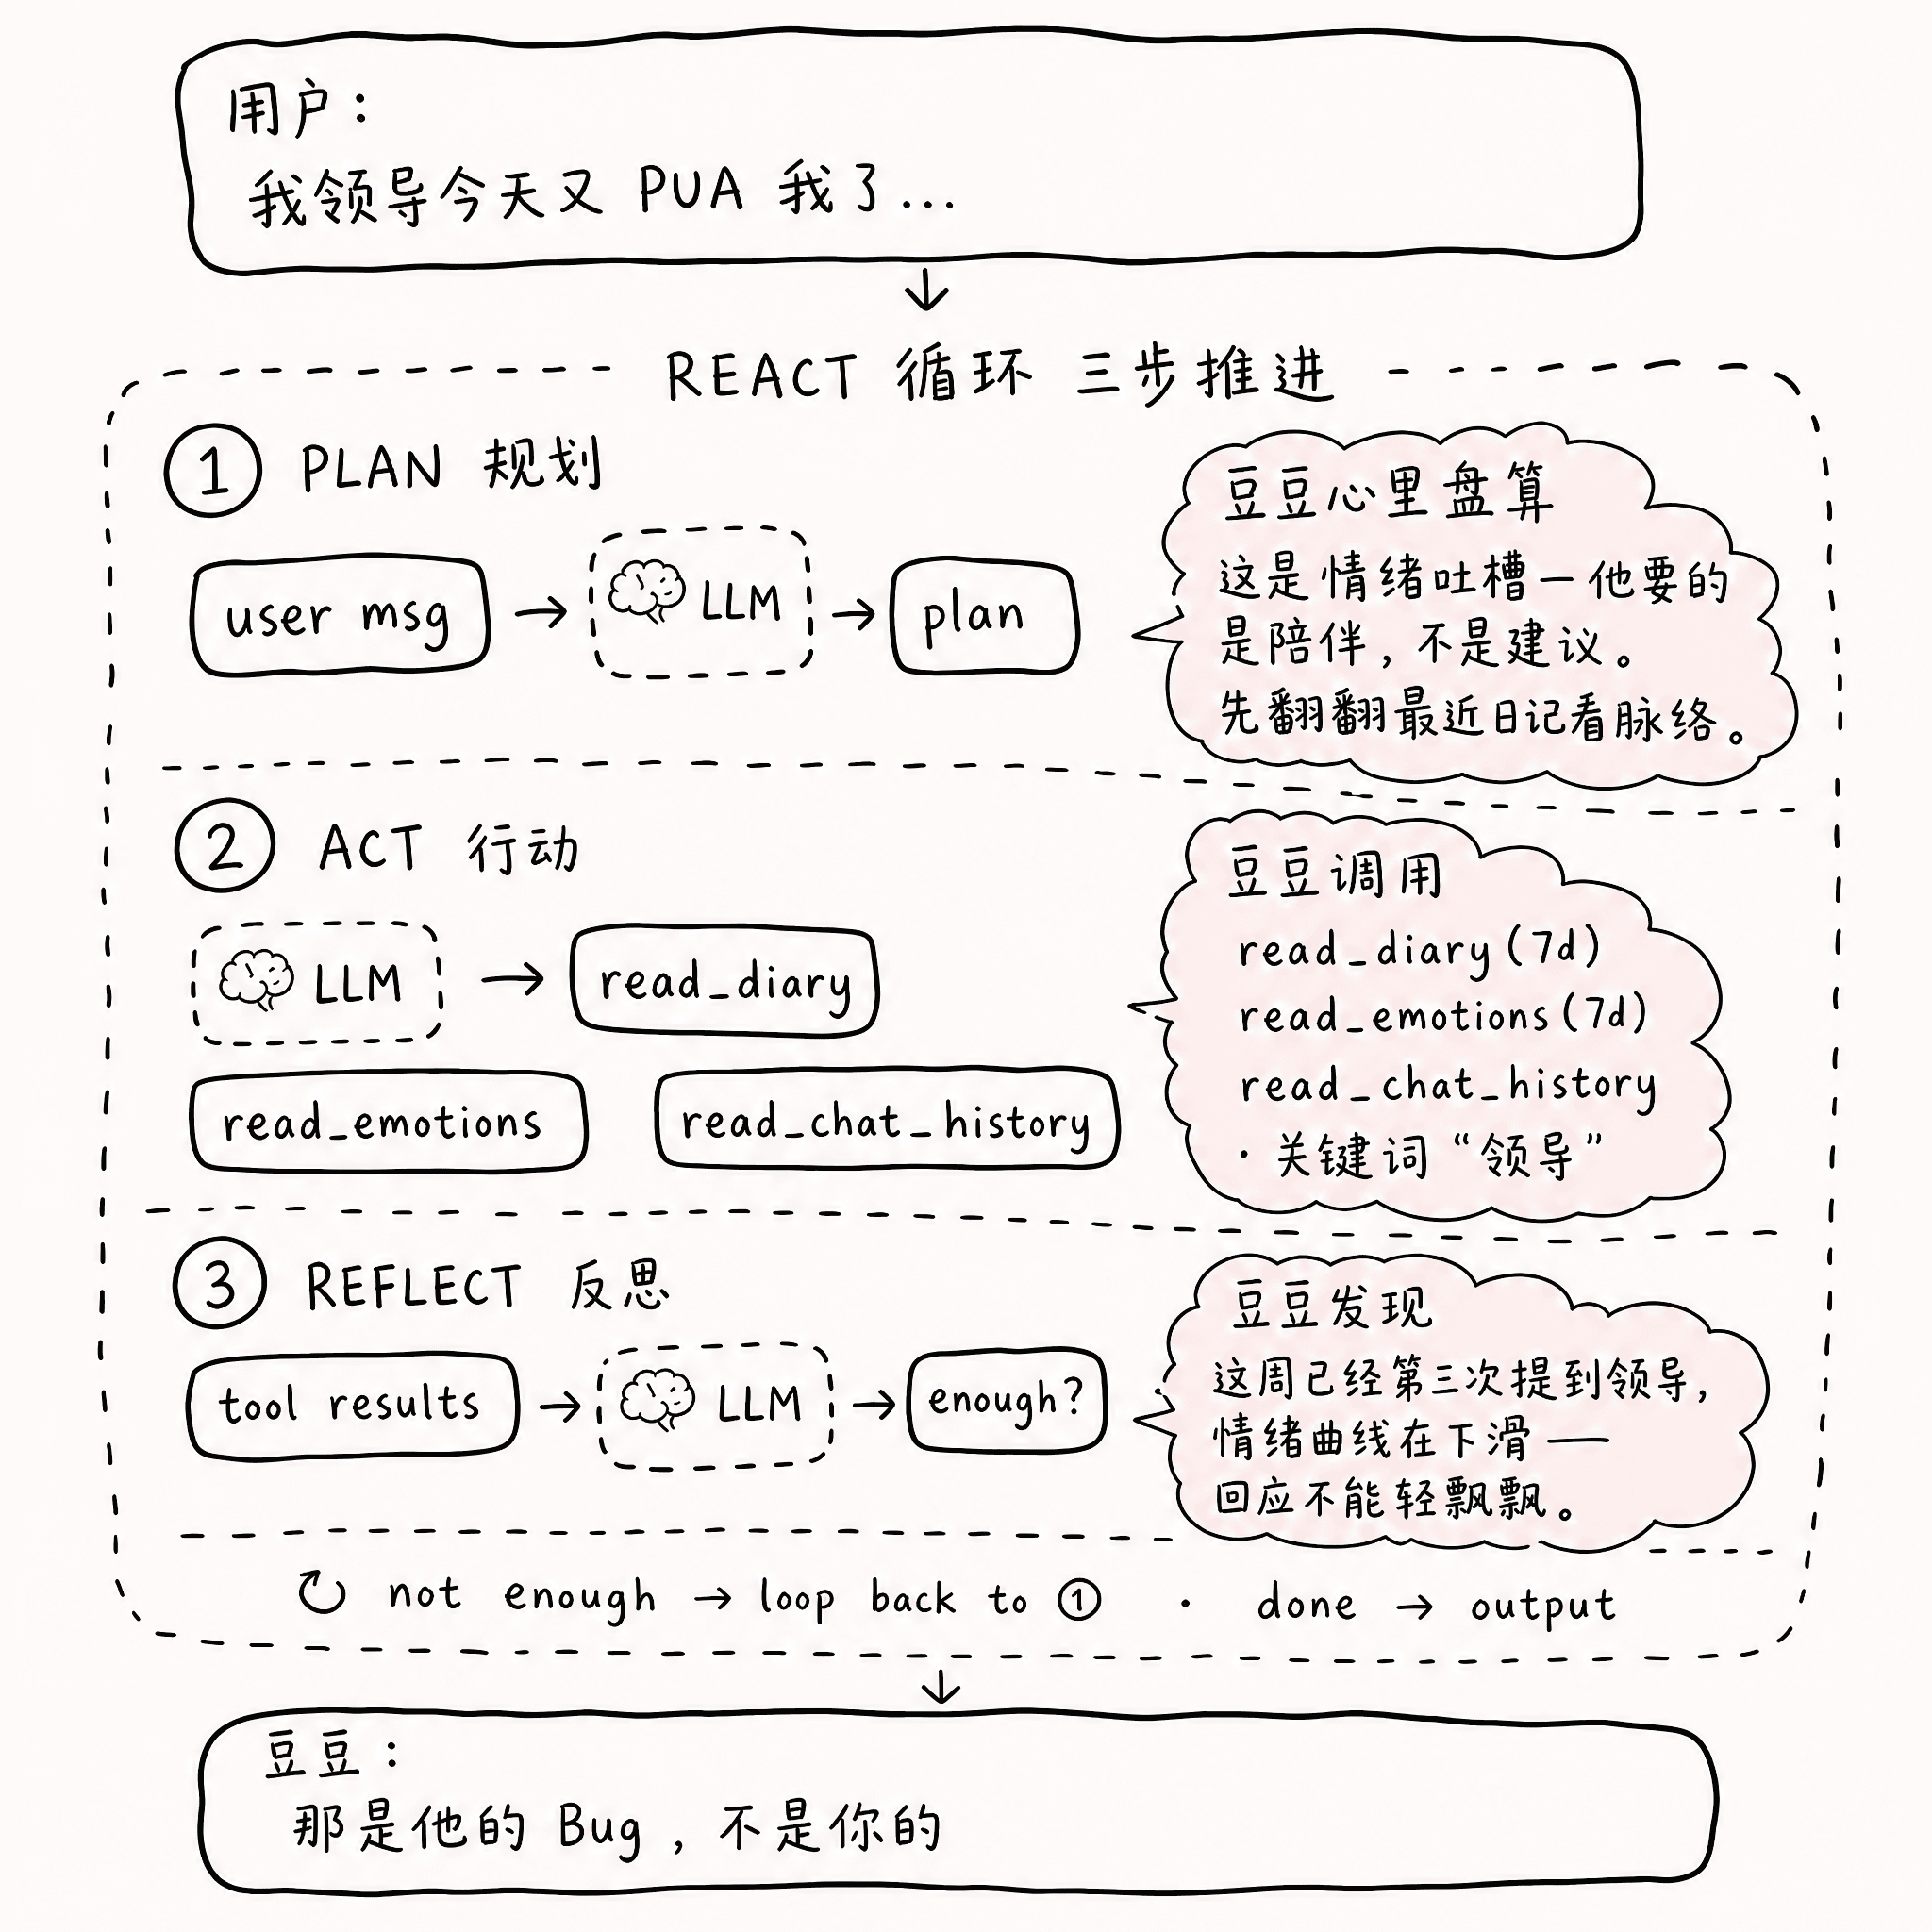 用户：
我领导今天又 PUA 我了...
REACT 循环 三步推进
① PLAN 规划
user msg → LLM → plan
豆豆心里盘算
这是情绪吐槽—他要的
是陪伴，不是建议。
先翻翻最近日记看脉络。
② ACT 行动
LLM → read_diary
read_emotions
read_chat_history
豆豆调用
read_diary(7d)
read_emotions(7d)
read_chat_history
· 关键词“领导”
③ REFLECT 反思
tool results → LLM → enough?
豆豆发现
这周已经第三次提到领导，
情绪曲线在下滑——
回应不能轻飘飘。
↻ not enough → loop back to ① · done → output
豆豆：
那是他的 Bug，不是你的